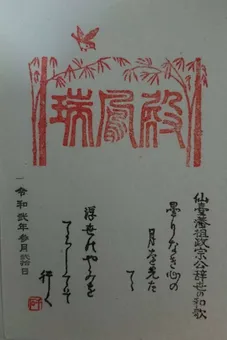 瑞鳳殿
仙臺藩祖政宗公辞世の和歌
曇りなき心の
月を先た
て
浮世のやみを
てらしてそ
行く
令和弐年参月弐拾日